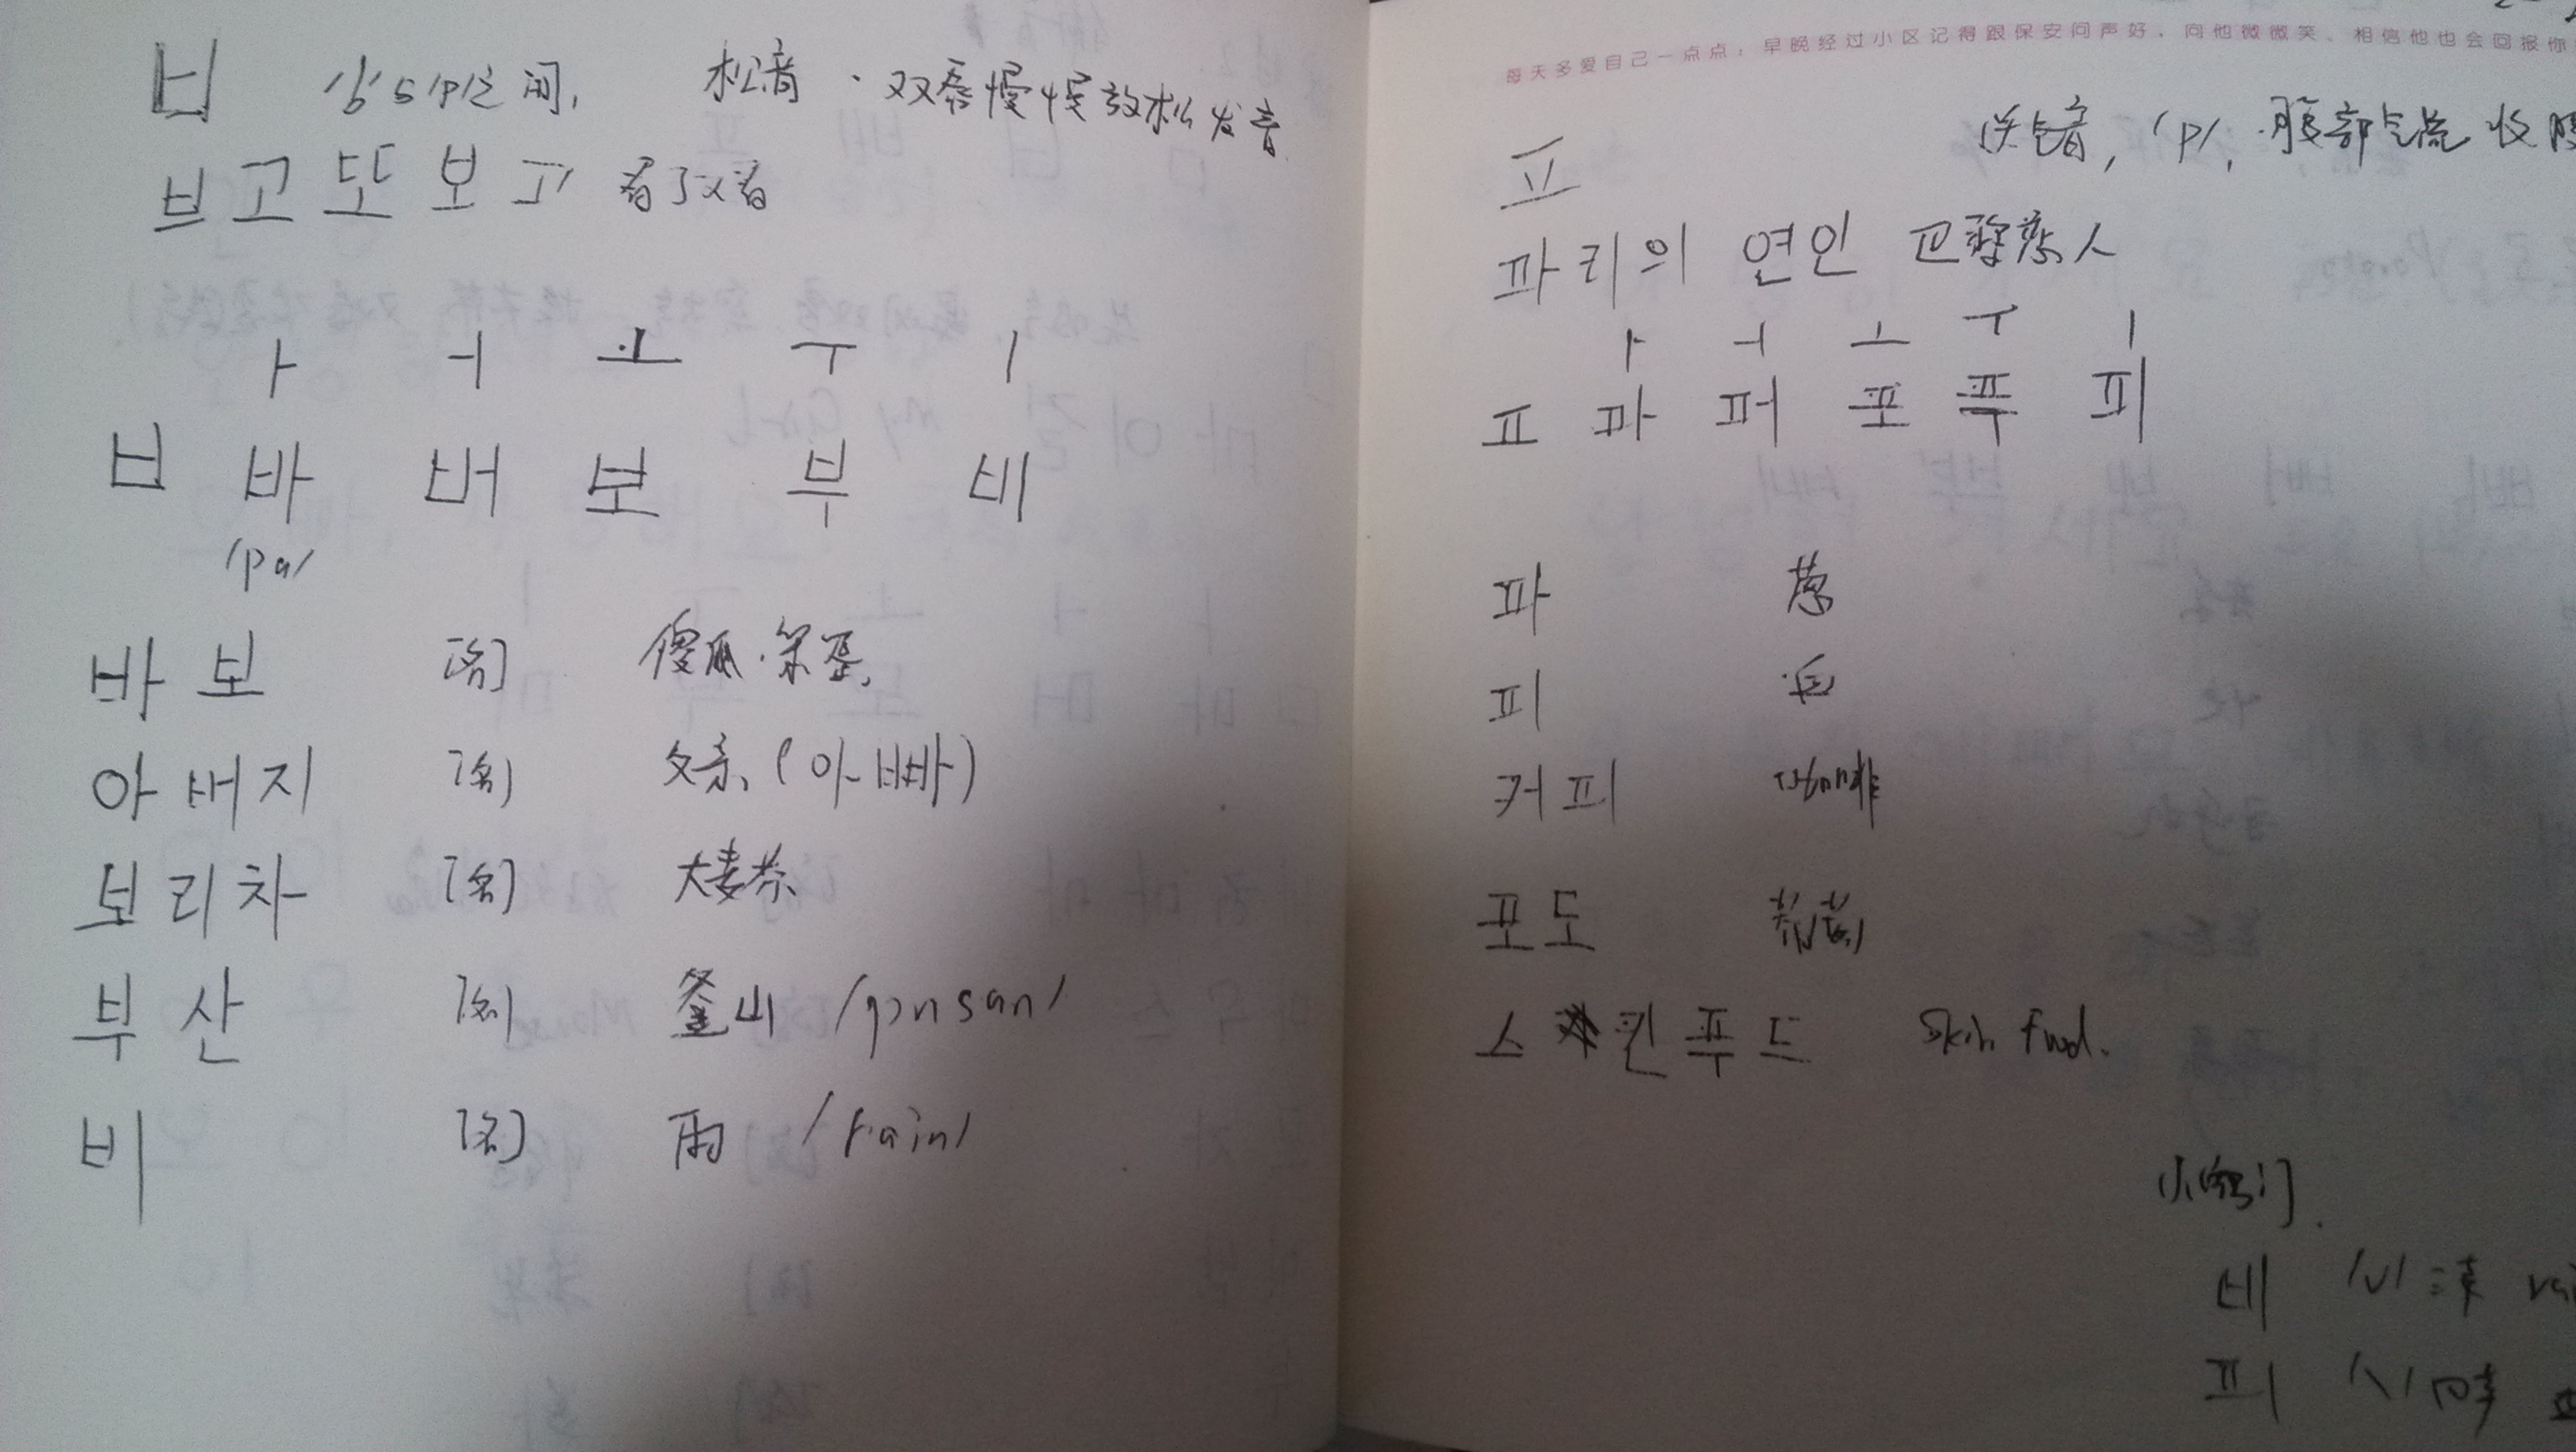 ㅂ 与/p/之间, 松音 · 双唇慢慢放松发音
브고 또 보고 看了又看
ㅏ ㅓ ㅗ ㅜ ㅣ
ㅂ 바 버 보 부 비
/pa/
바보 [名] 傻瓜·笨蛋,
아버지 [名] 父亲, (아빠)
보리차 [名] 大麦茶
부산 [名] 釜山
비 [名] 雨 /rain/
每天多爱自己一点点：早晚经过小区记得跟保安问声好，向他微微笑，相信他也会回报你
ㅍ 送气音, /p/, 腹部气流 收腹
파리의 연인 巴黎恋人
ㅏ ㅓ ㅗ ㅜ ㅣ
ㅍ 파 퍼 포 푸 피
파 葱
피 血
커피 咖啡
포도 葡萄
스킨푸드 Skin Food.
小窍门.
비 /v/
피